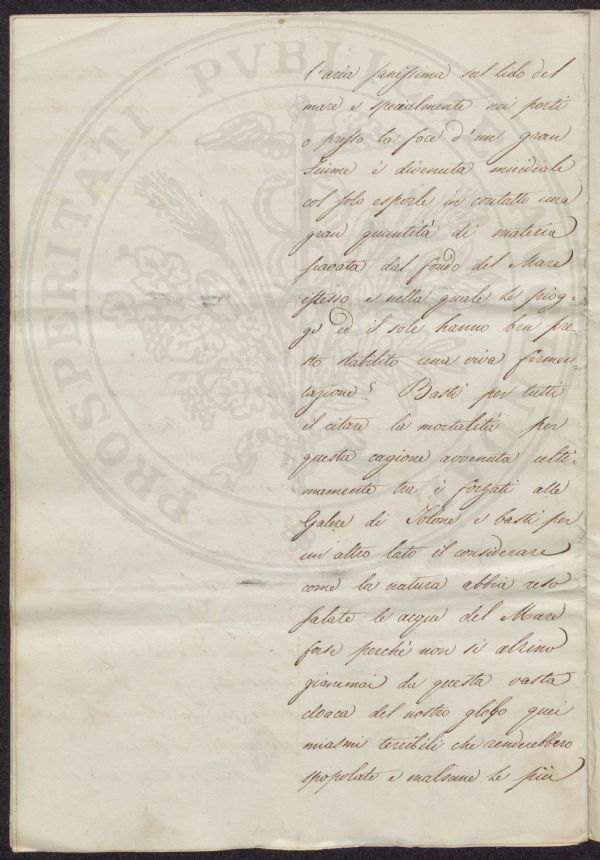 PROSPERITATI PVBLICAE
l'aria sanissima sul lido del
mare e specialmente nei porti
o presso la foce d'un gran
fiume è divenuta micidiale
col solo esporle in contatto una
gran quantità di materia
scavata dal fondo del Mare
istesso e nella quale le piog-
ge ed il sole hanno ben pre-
sto stabilito una viva fermen-
tazione? Basti per tutti
il citare la mortalità per
questa cagione avvenuta ulti-
mamente tra i forzati alle
Galere di Tolone e basti per
un altro lato il considerare
come la natura abbia reso
salate le acque del Mare
forse perché non si alzino
giammai da questa vasta
cloaca del nostro globo quei
miasmi terribili che renderebbero
spopolate e malsane le più